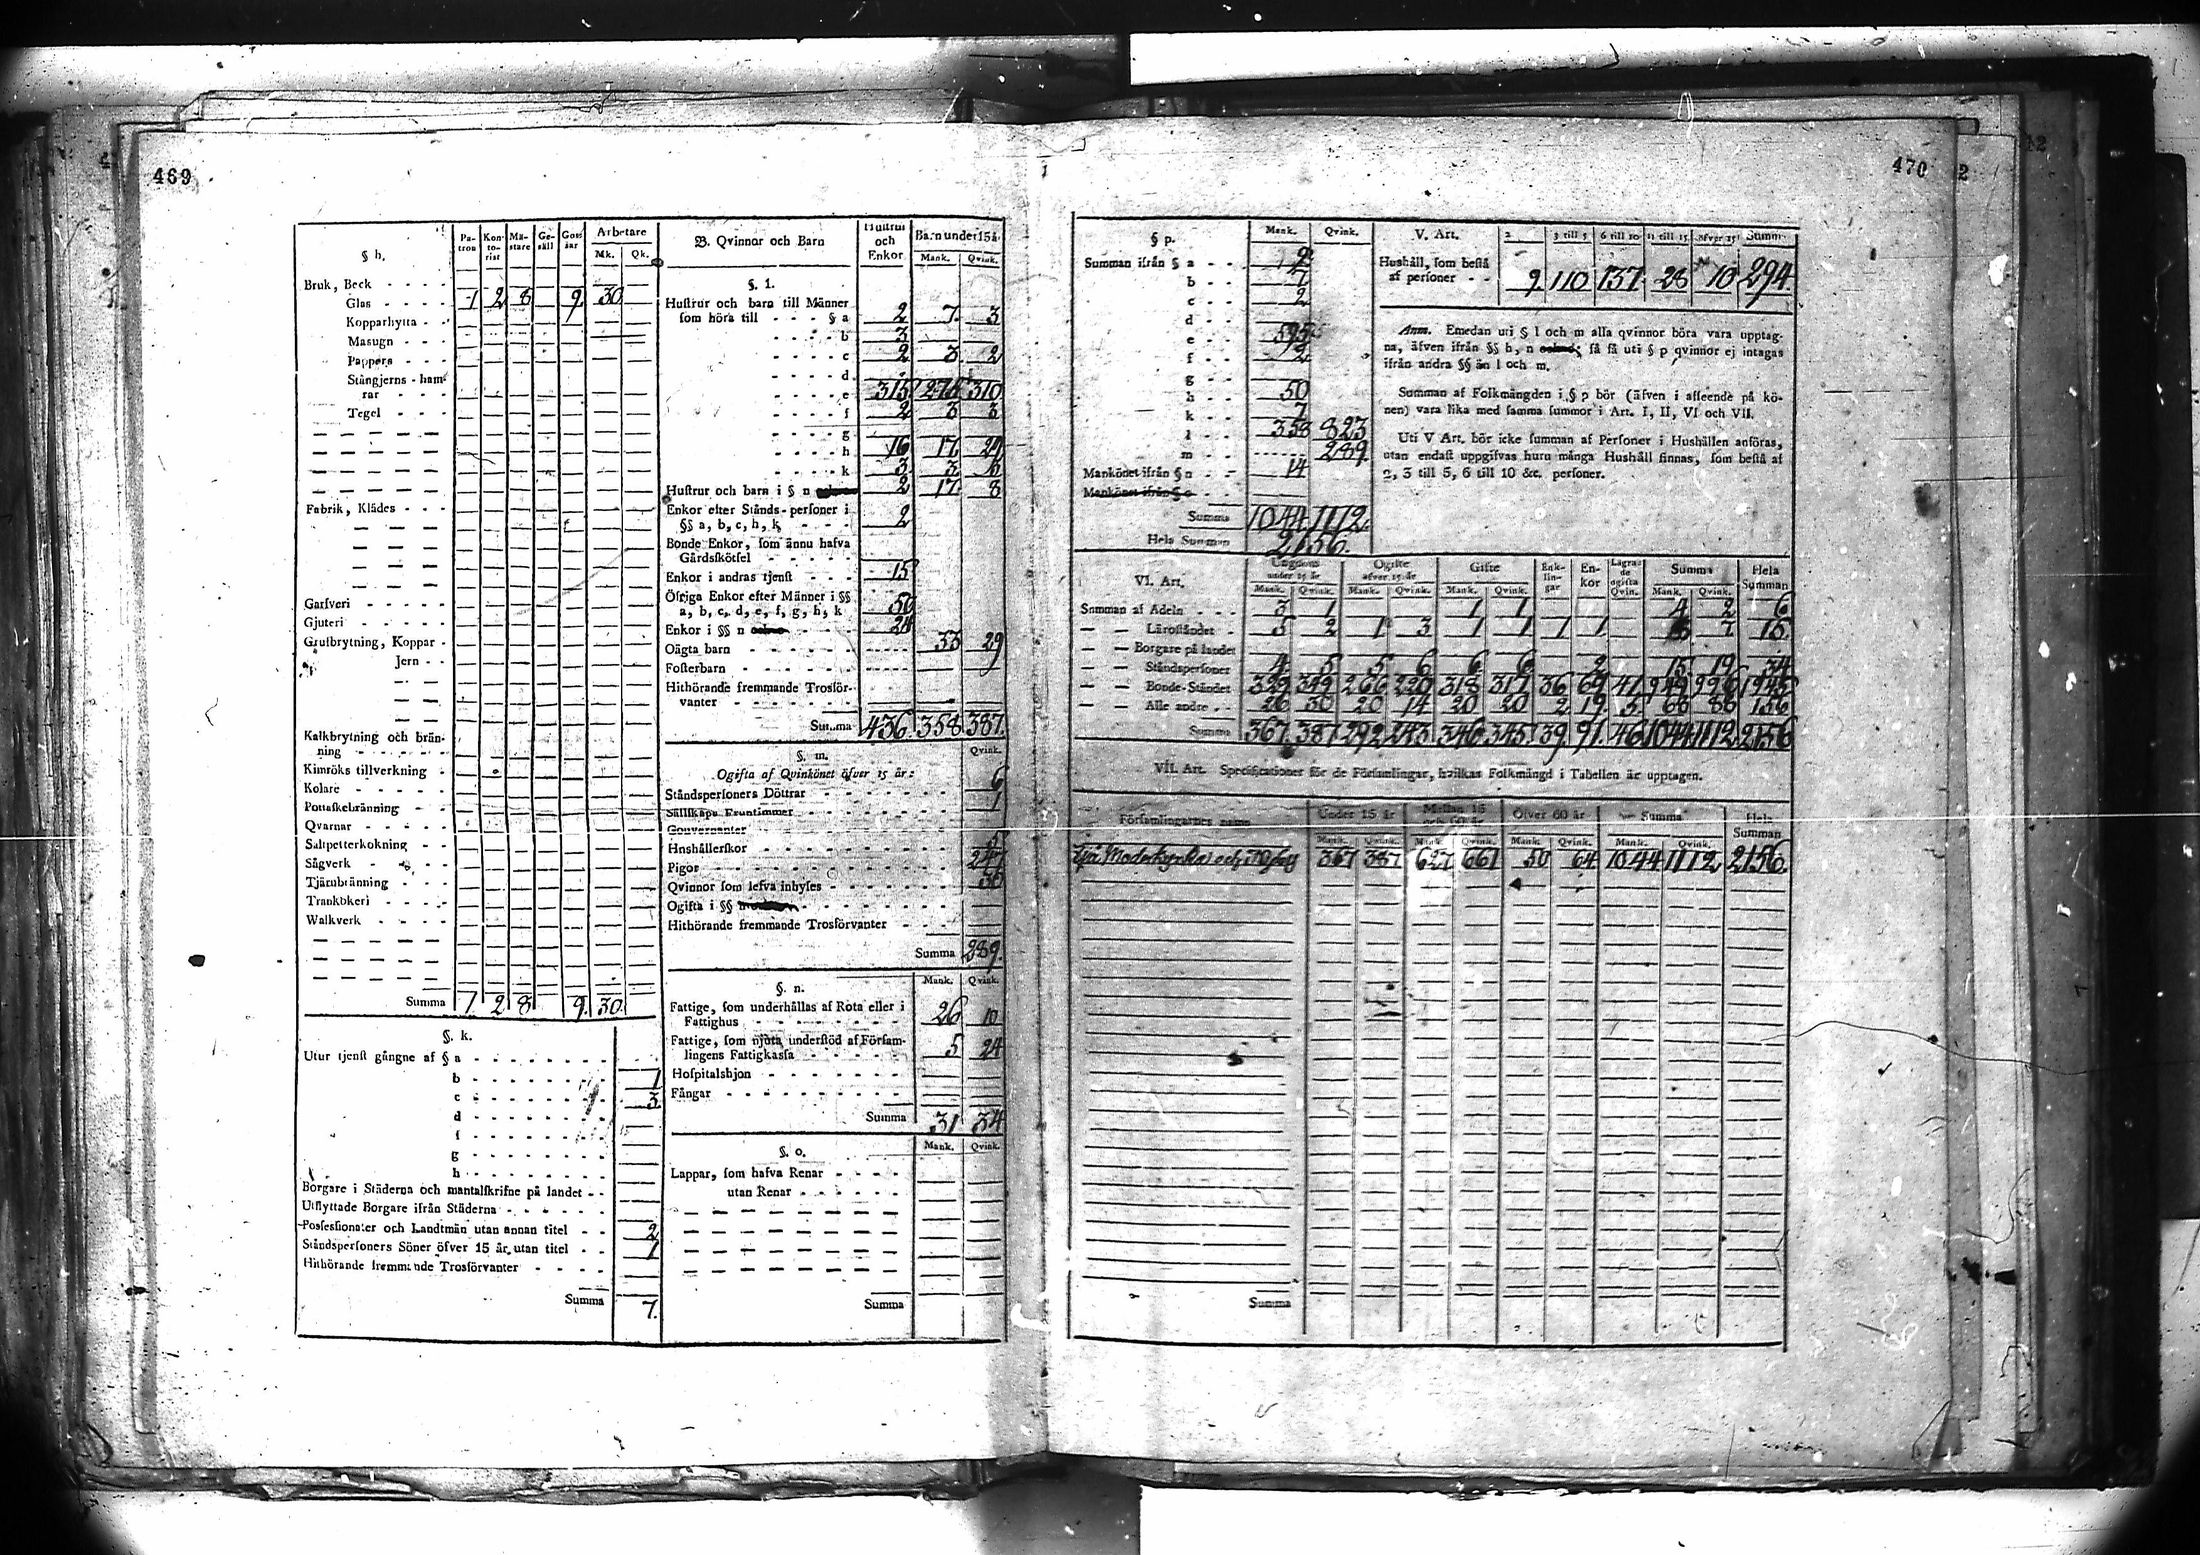 469
§ h.
Pa-tron Kon-to-rist Mä-stare Ge-säll Gos-sar Arbetare Mk. Qk.
Bruk, Beck - - - -
Glas - - - 1 2 8 9 30
Kopparhytta - -
Masugn - - -
Pappers - - -
Stångjerns-ham-
rar - - -
Tegel - - -
Fabrik, Klädes - - -
Garfveri - - - - -
Gjuteri - - - - -
Grufbrytning, Koppar -
Jern - -
Kalkbrytning och brän-
ning - - - - -
Kimröks tillverkning -
Kolare - - - - -
Pottaskebränning - -
Qvarnar - - - - -
Saltpetterkokning - -
Sågverk - - - -
Tjärubränning - - -
Trankokeri - - - -
Walkverk - - - -
Summa 1 2 8 9. 30.
§. k.
Utur tjenst gångne af § a - - - - - - -
b - - - - - - - 1
c - - - - - - - 3
d - - - - - - -
f - - - - - - -
g - - - - - - -
h - - - - - - -
Borgare i Städerna och mantalskrifne på landet - -
Utflyttade Borgare ifrån Städerna - - - - -
Possessionater och Landtmän utan annan titel - - 2
Ståndspersoners Söner öfver 15 år utan titel - - 1
Hithörande fremmande Trosförvanter - - - -
Summa 7.
B. Qvinnor och Barn
Hustrur och Enkor Barn under 15 å. Mank. Qvink.
§. l.
Hustrur och barn till Männer
som höra till - - - § a 2 7. 3
- - - - b 3
- - - - c 2 3 2
- - - - d
- - - - e 315 274 310
- - - - f 2 3 3
- - - - g
- - - - h 16 17
- - - - k 3. 3 6
Hustrur och barn i § n 2 17 8
Enkor efter Stånds-personer i
§§ a, b, c, h, k - - - 2
Bonde Enkor, som ännu hafva
Gårdsskötsel - - - - -
Enkor i andras tjenst - - - 15
Öfriga Enkor efter Männer i §§
a, b, c, d, e, f, g, h, k 50
Enkor i §§ n - - - 24
Oägta barn - - - - - 33 29
Fosterbarn - - - - -
Hithörande fremmande Trosför-
vanter - - - - - -
Summa 436. 358 387.
§. m.
Qvink.
Ogifta af Qvinkönet öfver 15 år:
Ståndspersoners Döttrar - - - - - - - 6
Sällskaps Fruntimmer - - - - - - - 1
Gouvernanter
Hushållerskor - - - - - - - -
Pigor - - - - - - - - - 247
Qvinnor som lefva inhyses - - - - - -
Ogifta i §§ - - - - - - -
Hithörande fremmande Trosförvanter - - -
Summa 289.
§. n.
Mank. Qvink.
Fattige, som underhållas af Rota eller i
Fattighus - - - - - - - 26 10
Fattige, som njuta understöd af Försam-
lingens Fattigkassa - - - - - 5 24
Hospitalshjon - - - - - - -
Fångar - - - - - - - - -
Summa 31 34
§. o.
Mank. Qvink.
Lappar, som hafva Renar - - - -
utan Renar - - - - - -
Summa
470
§ p.
Mank. Qvink.
Summan ifrån § a - - 2
b - - 7
c - - 2
d - -
e - - 595
f - - 2
g - -
h - - 50
k - - 7
l - - 358 823
m - - 289.
Mankönet ifrån § n - - 14
Mankönet ifrån § o - -
Summa 1044. 1112.
Hela Summan 2156.
V. Art.
2 3 till 5 6 till 10 11 till 15 öfver 15 Summa
Hushåll, som bestå
af personer - - 9 110 137. 28 10 294
Anm. Emedan uti § l och m alla qvinnor böra vara upptag-
na, äfven ifrån §§ h, n så få uti § p qvinnor ej intagas
ifrån andra §§ än l och m.
Summan af Folkmängden i § p bör (äfven i afseende på kö-
nen) vara lika med samma summor i Art. I, II, VI och VII.
Uti V Art. bör icke summan af Personer i Hushållen anföras,
utan endast uppgifvas huru många Hushåll finnas, som bestå af
2, 3 till 5, 6 till 10 &c. personer.
VI. Art.
Ungdom under 15 år Ogifte öfver 15 år Gifte Enk-lin-gar En-kor Lägra-de ogifta Qvin. Summa Hela Summan
Mank. Qvink. Mank. Qvink. Mank. Qvink. Mank. Qvink.
Summan af Adeln - - - 3 1 1 1 4 2 6
— — Läroståndet - 5 2 1 3 1 1 1 1 7
— — Borgare på landet
— — Ståndspersoner 4 5 5 6 6 6 2 15 19 34
— — Bonde-Ståndet 329 349 266 220 318 317 36 69 41
— — Alle andre - - 26 30 20 14 20 20 2 19 5 68 88 156
Summa 367. 387 292. 243 346 345. 39. 91. 46 1044 1112. 2156
VII. Art. Specificationer för de Församlingar, hvilkas Folkmängd i Tabellen är upptagen.
Församlingarnes namn Under 15 år Mellan 15 och 60 år Öfver 60 år Summa Hela Summan
Mank. Qvink. Mank. Qvink. Mank. Qvink. Mank. Qvink.
Moderkyrka och 367 387 627 661 50 64 1044 1112 2156.
Summa